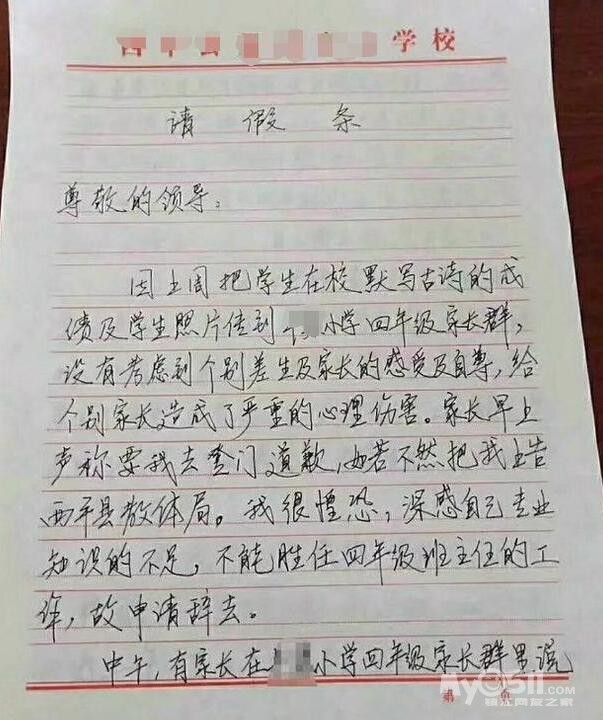 西平县 学校
请假条
尊敬的领导：
因上周把学生在校默写古诗的成
绩及学生照片传到 小学四年级家长群，
没有考虑到个别差生及家长的感受及自尊，给
个别家长造成了严重的心理伤害。家长早上
声称要我去登门道歉，如若不然把我上告
西平县教体局。我很惶恐，深感自己专业
知识的不足，不能胜任四年级班主任的工
作，故申请辞去。
中午，有家长在 小学四年级家长群里说
第 页
My0511.com
镇江网友之家